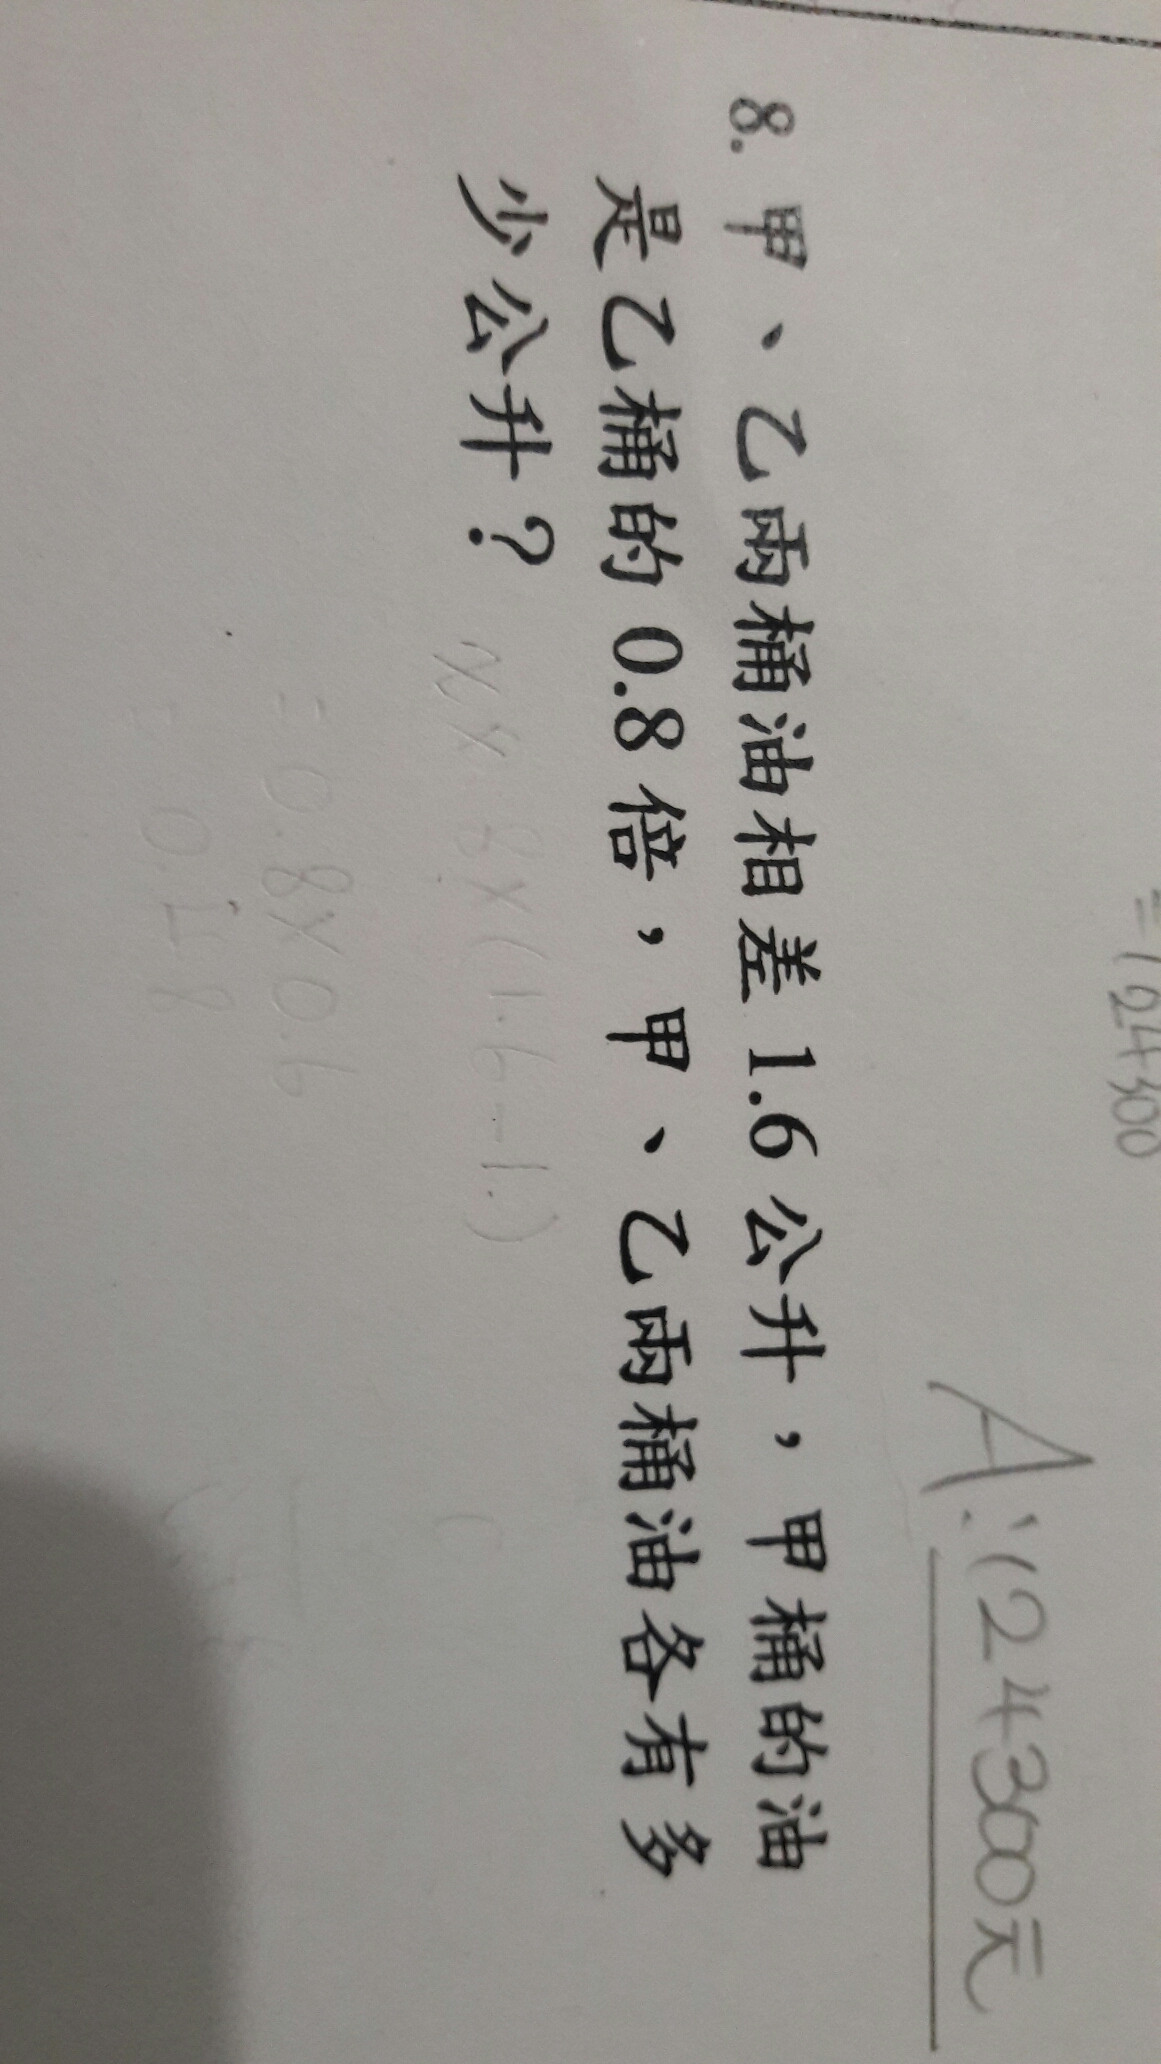 =124300
A:124300元
8. 甲、乙兩桶油相差 1.6 公升，甲桶的油
是乙桶的 0.8 倍，甲、乙兩桶油各有多
少公升？
8×(1.6-1)
=0.8×0.6
=0.48